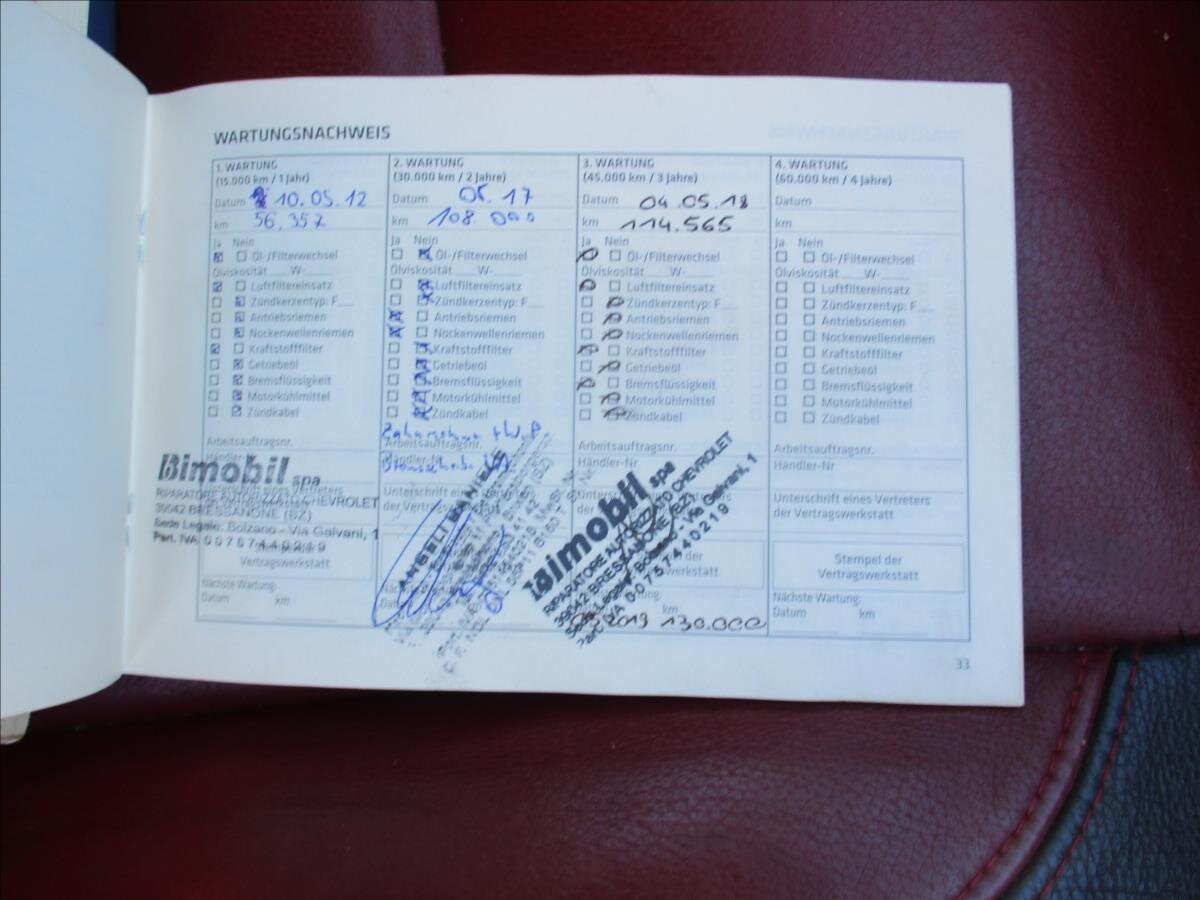 WARTUNGSNACHWEIS
1. WARTUNG
(15.000 km / 1 Jahr)
Datum 10.05.12
km 56.357
Ja Nein
Öl-/Filterwechsel
Ölviskosität W-
Luftfiltereinsatz
Zündkerzentyp: F
Antriebsriemen
Nockenwellenriemen
Kraftstofffilter
Getriebeöl
Bremsflüssigkeit
Motorkühlmittel
Zündkabel
Arbeitsauftragsnr.
Händler-Nr
Bimobil spa
Unterschrift eines Vertreters
RIPARATORE AUTORIZZATO CHEVROLET
39042 BRESSANONE (BZ)
Sede Legale: Bolzano - Via Galvani, 1
Part. IVA 00757440219
Stempel der
Vertragswerkstatt
Nächste Wartung:
Datum km
2. WARTUNG
(30.000 km / 2 Jahre)
Datum 05.17
km 108.000
Ja Nein
Öl-/Filterwechsel
Ölviskosität W-
Luftfiltereinsatz
Zündkerzentyp: F
Antriebsriemen
Nockenwellenriemen
Kraftstofffilter
Getriebeöl
Bremsflüssigkeit
Motorkühlmittel
Zündkabel
Arbeitsauftragsnr.
Unterschrift
der Vertrags
ANGELI DANIELE
3. WARTUNG
(45.000 km / 3 Jahre)
Datum 04.05.18
km 114.565
Ja Nein
Öl-/Filterwechsel
Ölviskosität W-
Luftfiltereinsatz
Zündkerzentyp: F
Antriebsriemen
Nockenwellenriemen
Kraftstofffilter
Getriebeöl
Bremsflüssigkeit
Motorkühlmittel
Zündkabel
Arbeitsauftragsnr.
Händler-Nr
Bimobil spa
RIPARATORE AUTORIZZATO CHEVROLET
39042 BRESSANONE (BZ)
Sede Legale: Bolzano - Via Galvani, 1
Part. IVA 00757440219
km
2019 130.000
4. WARTUNG
(60.000 km / 4 Jahre)
Datum
km
Ja Nein
Öl-/Filterwechsel
Ölviskosität W-
Luftfiltereinsatz
Zündkerzentyp: F
Antriebsriemen
Nockenwellenriemen
Kraftstofffilter
Getriebeöl
Bremsflüssigkeit
Motorkühlmittel
Zündkabel
Arbeitsauftragsnr.
Händler-Nr
Unterschrift eines Vertreters
der Vertragswerkstatt
Stempel der
Vertragswerkstatt
Nächste Wartung:
Datum km
33